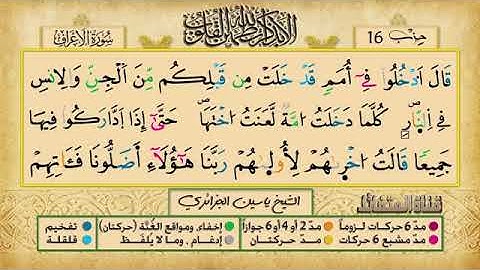 سُورَةُ الأَعْرَافِ
أَلَا بِذِكْرِ اللَّهِ تَطْمَئِنُّ الْقُلُوبُ
حزب 16
قَالَ اَدْخُلُواْ فِےٓ أُمَمٖ قَدْ خَلَتْ مِن قَبْلِكُم مِّنَ اَلْجِنِّ وَالِانسِ
فِے اِلنّ۪ارِۖ كُلَّمَا دَخَلَتُ امَّةٞ لَّعَنَتُ اخْتَهَاۖ حَتَّىٰٓ إِذَا اَدَّارَكُواْ فِيهَا
جَمِيعاٗ قَالَتُ اخْر۪ىٰهُمْ لِأُول۪ىٰهُمْ رَبَّنَا هَٰٓؤُلَآءِ اَضَلُّونَا فَـَٔاتِهِمْ
الشيخ ياسين الجزائري
مدّ 6 حركات لزوماً
مدّ 2 أو 4 أو 6 جوازاً
إخفاء، ومواقع الغُنَّة (حركتان)
تفخيم
مدّ مشبع 6 حركات
مدّ حركتان
إدغام، وما لا يُلفَظ
قلقلة